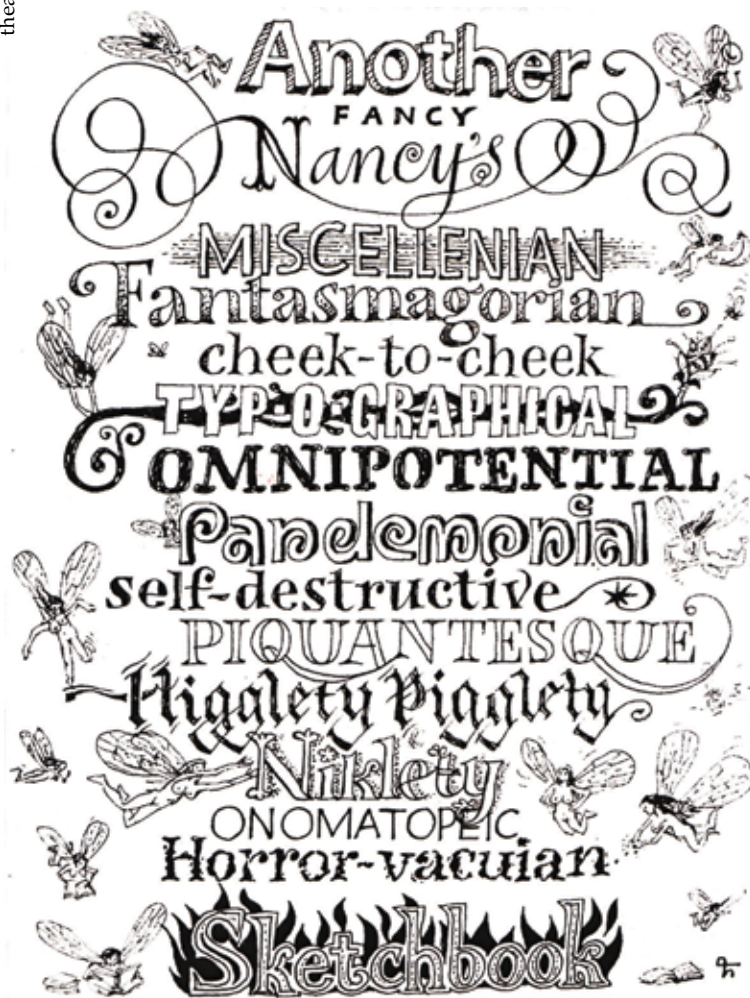 thea
Another
FANCY
Nancy's
MISCELLENIAN
Fantasmagorian
cheek-to-cheek
TYP-O-GRAPHICAL
OMNIPOTENTIAL
Pandemonial
self-destructive
PIQUANTESQUE
Higglety Pigglety
Niklety
ONOMATOPEIC
Horror-vacuian
Sketchbook